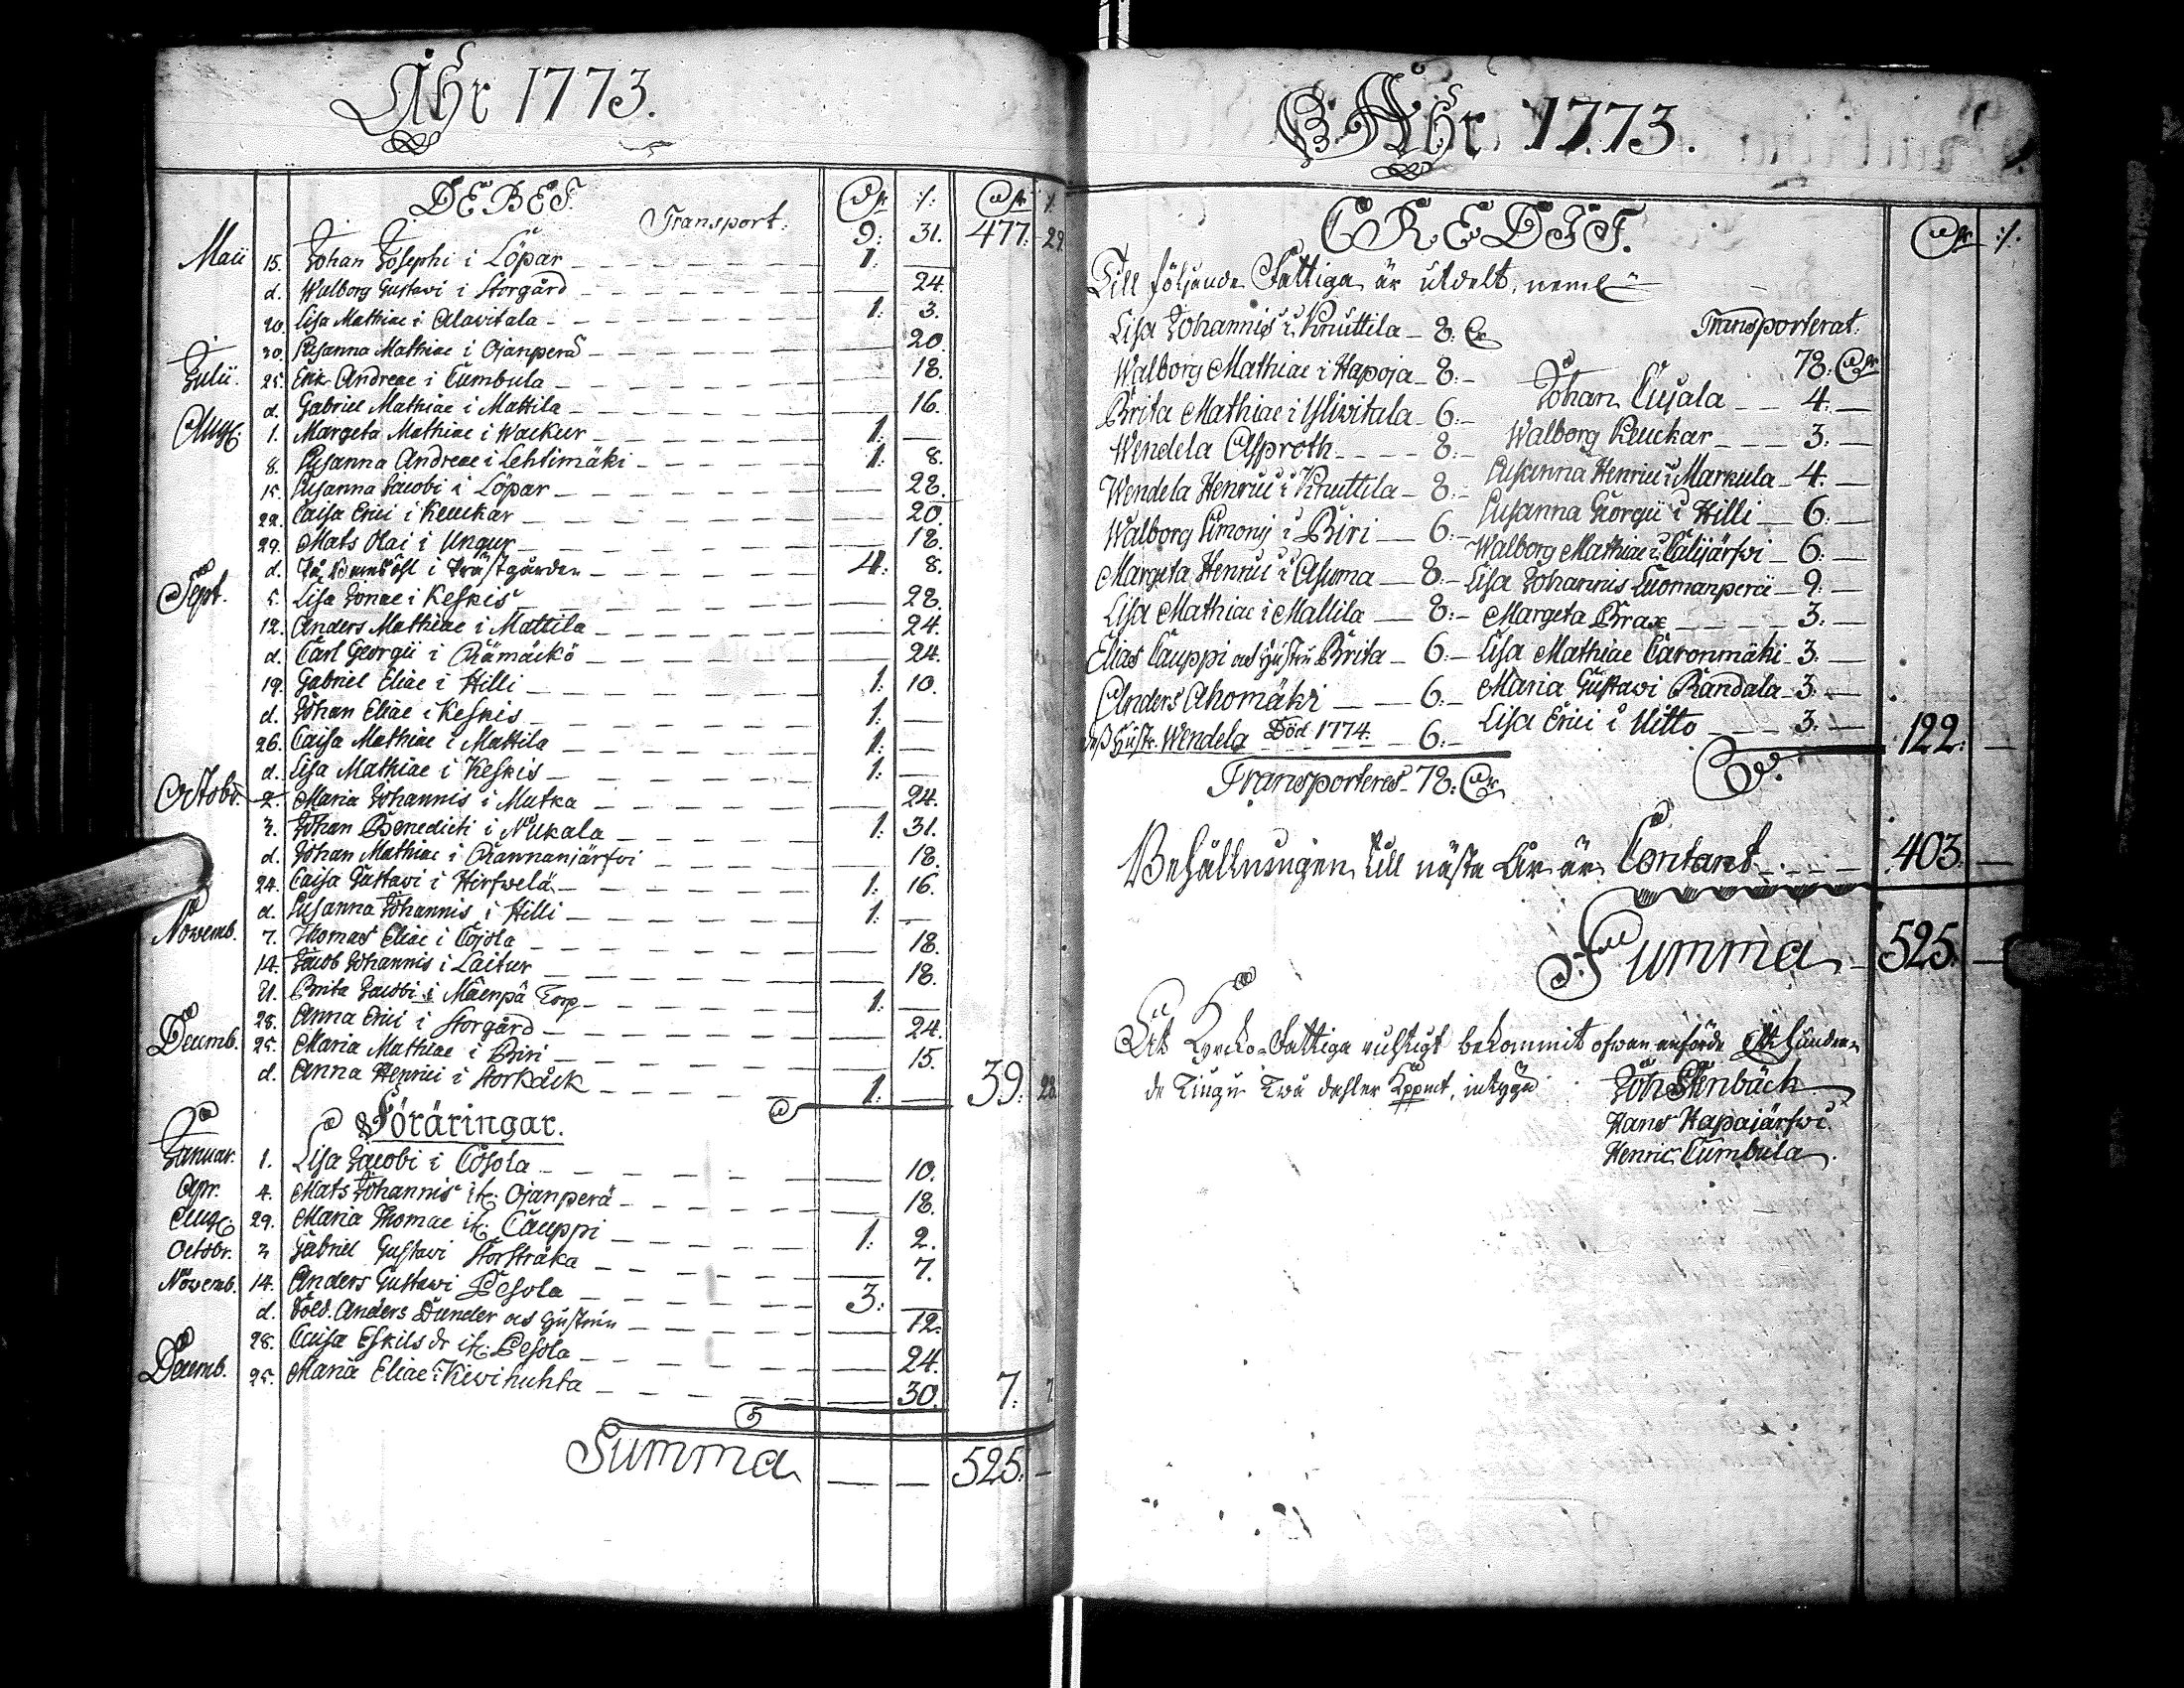 Åhr 1773.
DEBET. Dr :/: Dr :/:
Transport. 9: 31. 477: 29.
Maii 15. Johan Josephi i Löpar 1: —
d. Walborg Gustavi i Storgård — 24.
20. Lisa Mathiae i Alavitala 1: 3.
30. Susanna Mathiae i Ojanperä — 20.
Julii. 25. Erik Andreae i Cumbula — 18.
d. Gabriel Mathiae i Mattila — 16.
Aug. 1. Margeta Mathiae i Wackur 1: —
8. Susanna Andreae i Lehtimäki 1: 8.
15. Susanna Jacobi i Löpar — 28.
22. Caisa Erici i Keuckar — 20.
29. Mats Olai i Ungur — 18.
d. i Prästgården 4: 8.
Sept. 5. Lisa Jonae i Keskis — 28.
12. Anders Mathiae i Mattila — 24.
d. Carl Georgii i Rämäckö — 24.
19. Gabriel Eliae i Hilli 1: 10.
d. Johan Eliae i Keskis 1: —
26. Caisa Mathiae i Mattila 1: —
d. Lisa Mathiae i Keskis 1: —
Octobr. 2. Maria Johannis i Mutka — 24.
3. Johan Benedicti i Nukala 1: 31.
d. Johan Mathiae i Rannanjärfvi — 18.
24. Caisa Gustavi i Hirfvelä 1: 16.
d. Susanna Johannis i Hilli 1: —
Novemb. 7. Thomas Eliae i Cojola — 18.
14. Jacob Johannis i Laitur — 18.
21. Brita Jacobi i Mäenpä Torp 1: —
28. Anna Erici i Storgård — 24.
Decemb. 25. Maria Mathiae i Biri — 15.
d. Anna Henrici i Storkåck 1: — 39: 28.
Föräringar.
Januar. 1. Lisa Jacobi i Cosola — 10.
Apr. 4. Mats Johannis it: Ojanperä — 18.
Aug. 29. Maria Thomae it: Cauppi 1: 2.
Octobr. 3 Gabriel Gustavi Storstråka — 7.
Novemb. 14. Anders Gustawi Pesola 3: —
d. Sold. Anders Dunder och Hustrun — 12:
28. Caisa Eskils dr it: Pesola — 24.
Decemb. 25. Maria Eliae i Kiwihuhta — 30. 7: 7.
Summa — — 525: —
Åhr 1773.
CREDIT. Dr :/:
Till följande Fattiga är utdelt, neml
Lisa Johannis i Knuttila 8: Dr
Walborg Mathiae i Hapoja 8:
Brita Mathiae i Yliwitala 6:
Wendela Asproth 8:
Wendela Henrici i Knuttila 8:
Walborg Simonis i Biri 6:
Margeta Henrici i Asuma 8:
Lisa Mathiae i Mallila 8:
Elias Cauppi och hustru Brita 6:
Anders Ahomäki 6:
deß Hustr. Wendela Död 1774. 6:
Transporteres 78: Dr
Transporterat.
78: Dr
Johan Cujala 4: —
Walborg Keuckar 3: —
Susanna Henrici i Markula 4: —
Susanna Georgii i Hilli 6: —
Walborg Mathiae i Calijärfwi 6: —
Lisa Johannis Tuomanperä 9: —
Margeta Brax 3: —
Lisa Mathiae Caronmäki 3: —
Maria Gustawi Randala 3: —
Lisa Erici i Uitto 3: — 122: —
Behållningen till nästa År är Contant 403: —
Summa 525: —
Att Kyrcko-Fattiga richtigt bekommit ofwan anförde Ett Hundra-
de Tiugu Twå dahler Kppmt, intyga
Joh Stenbäck
Hans Hapajärfwi.
Henric Cumbula.